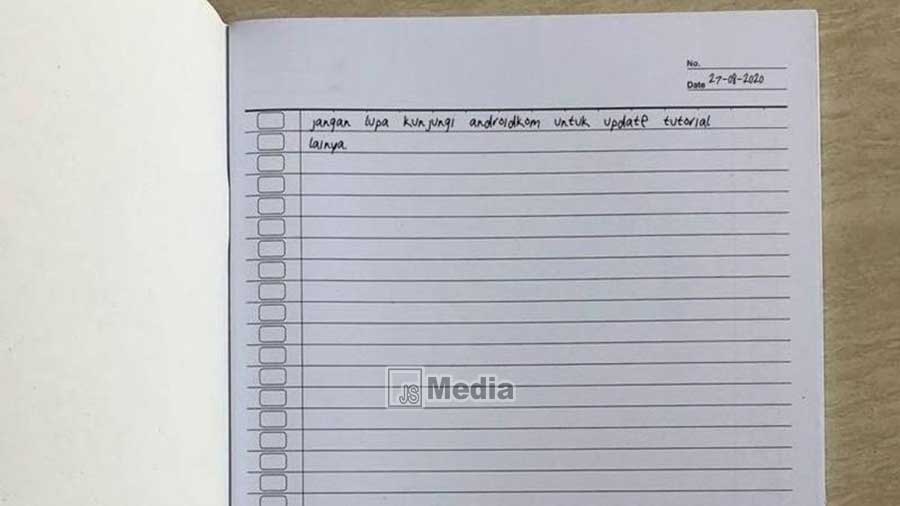 No.
Date 27-08-2020
jangan lupa kunjungi androidkom untuk update tutorial
lainya
JS Media